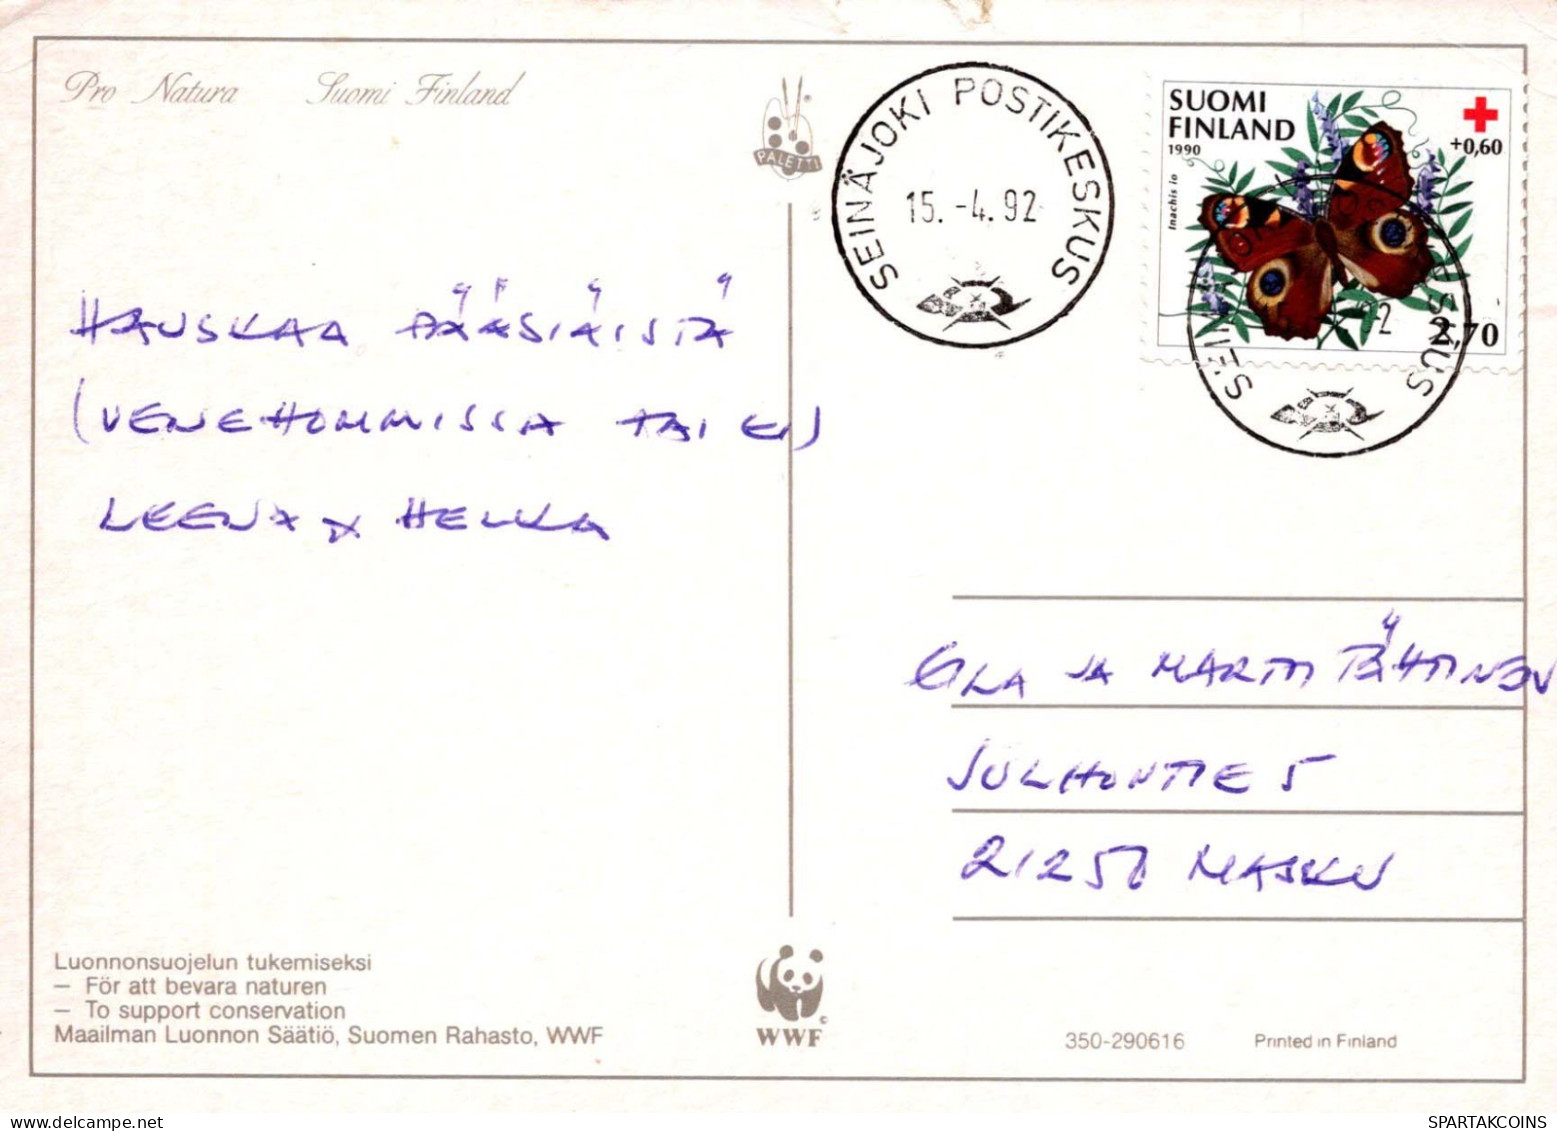 Pro Natura Suomi Finland
PALETTI
SEINÄJOKI POSTIKESKUS
15.-4.92
SUOMI
FINLAND
1990
+0,60
Inachis io
2,70
HAUSKAA PÄÄSIÄISTÄ
(VENEHOMMISSA TAI EI)
LEENA & HELKA
JA MARTTI TÄHTINEN
JULHONTIE 5
21250 MASKU
Luonnonsuojelun tukemiseksi
– För att bevara naturen
– To support conservation
Maailman Luonnon Säätiö, Suomen Rahasto, WWF
WWF
©
350-290616 Printed in Finland
SPARTAKCOINS.COM